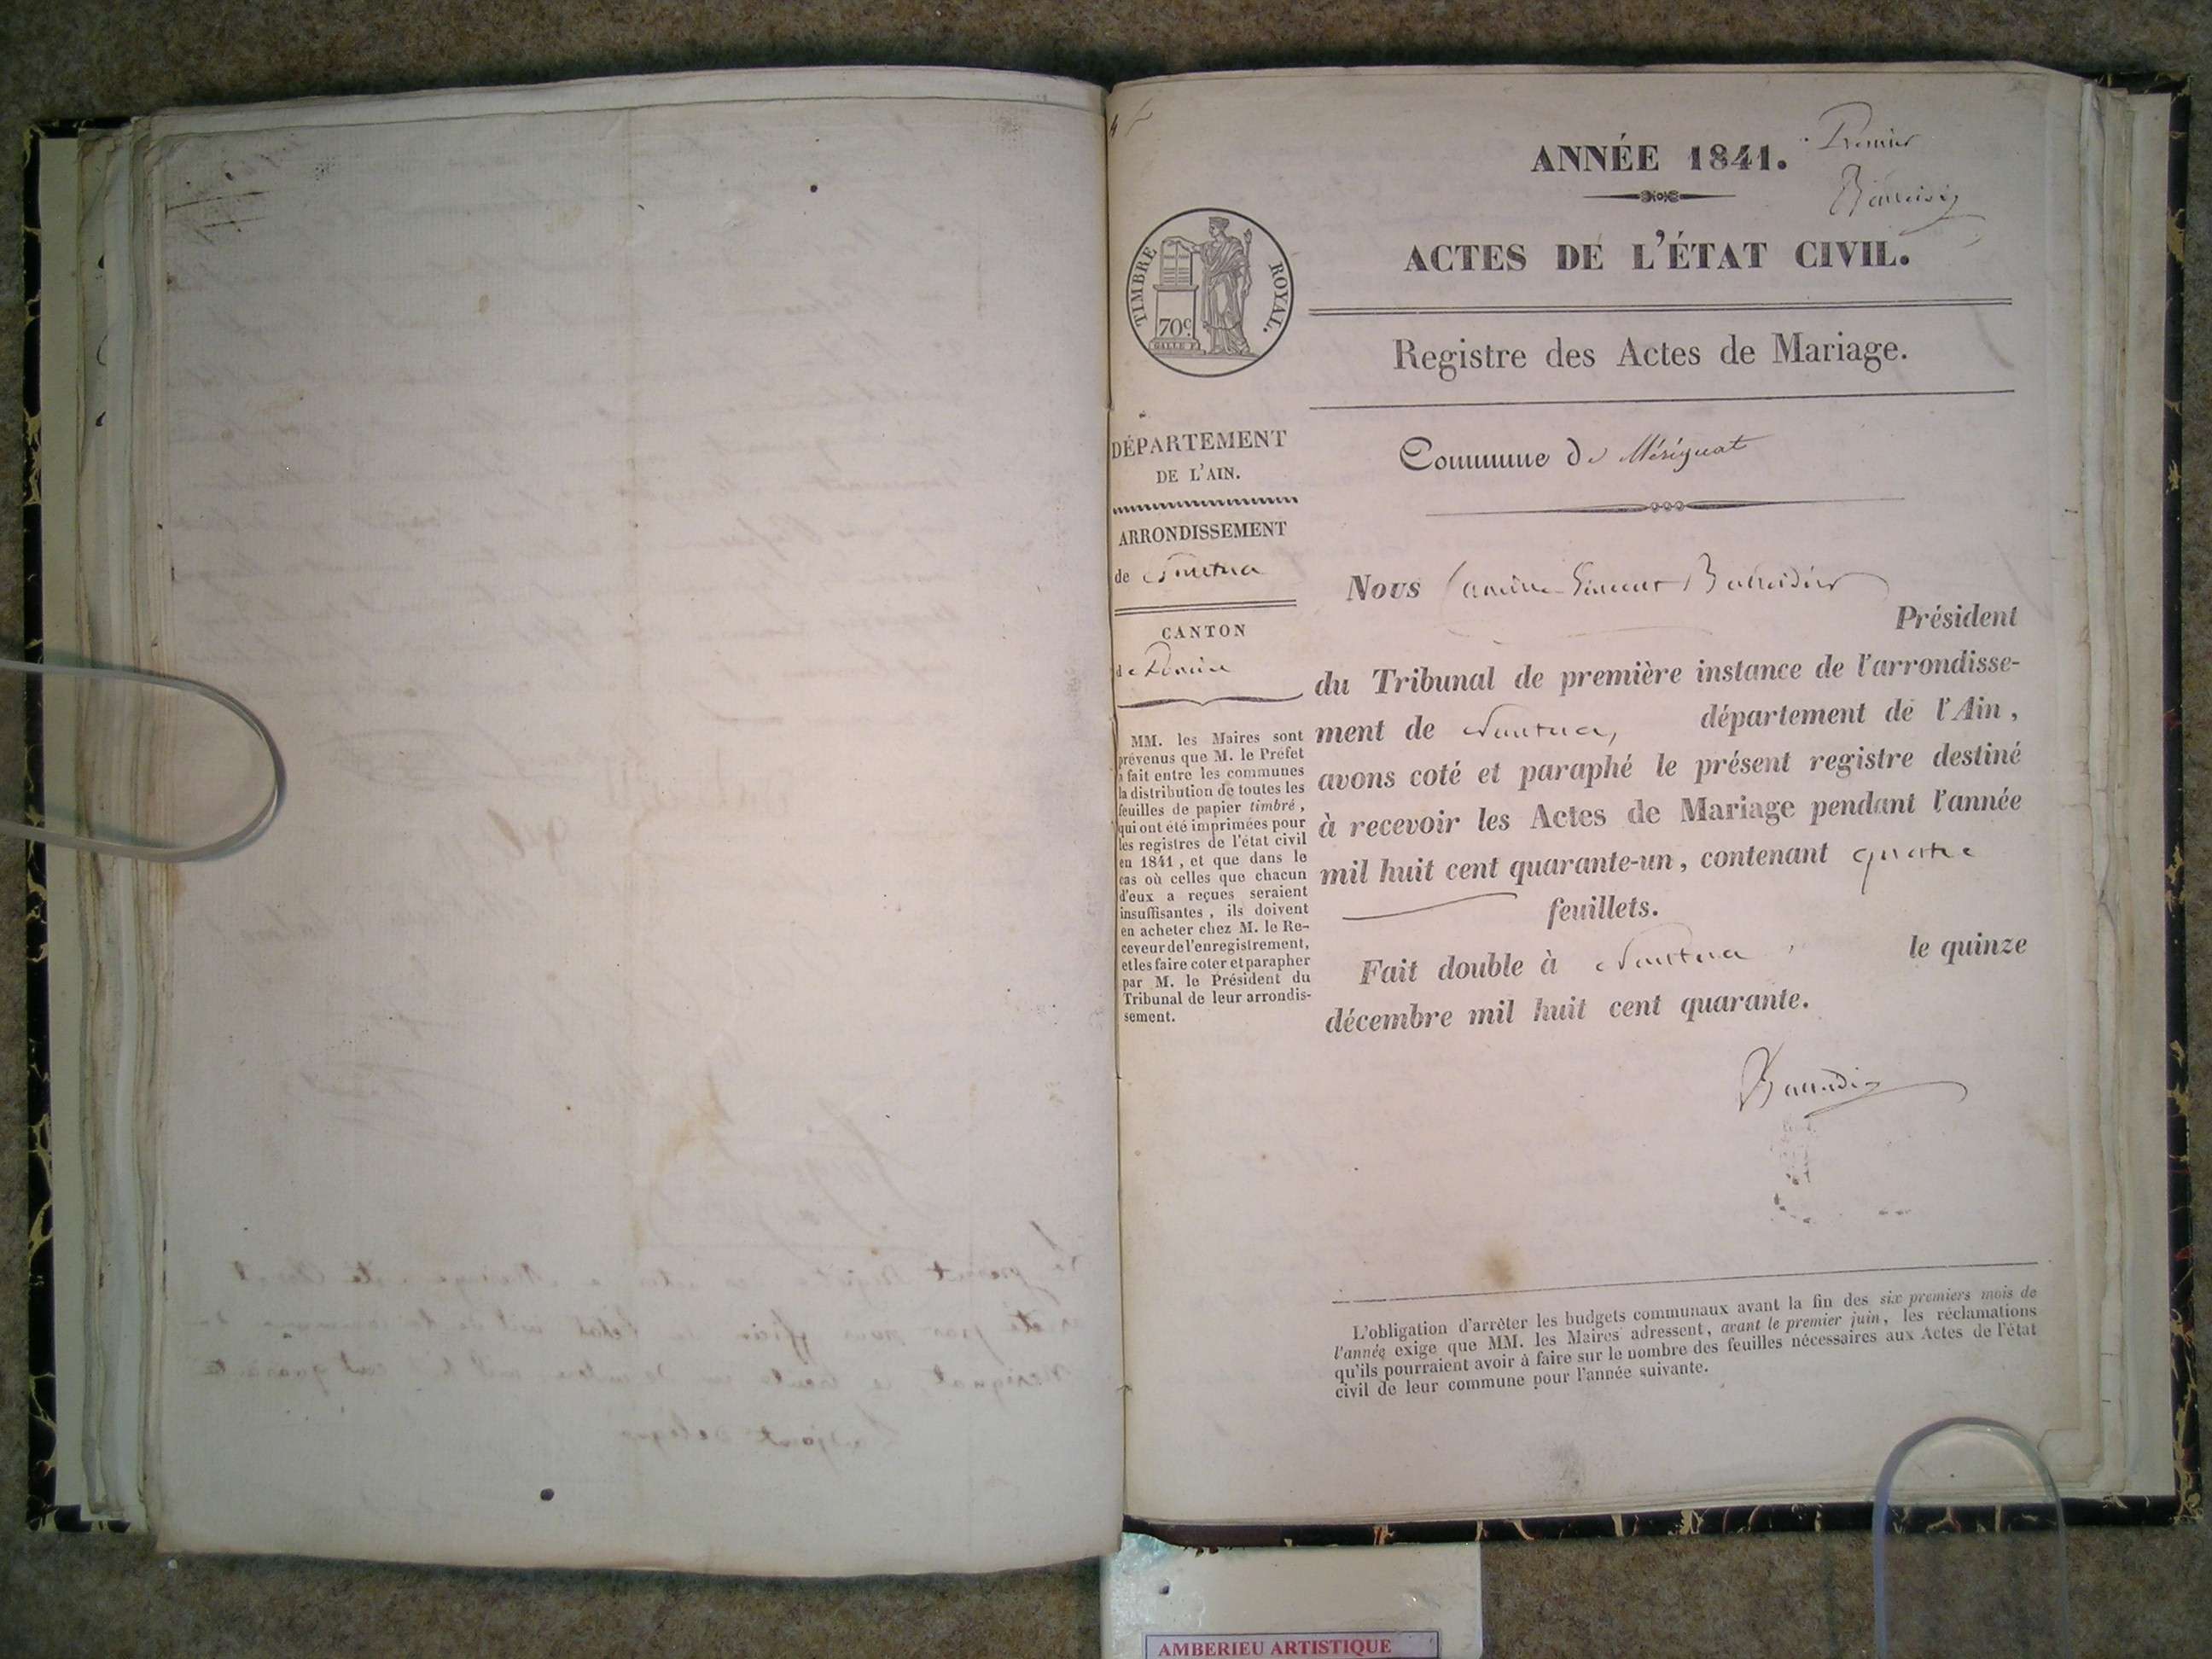 ANNÉE 1841.
Premier
ACTES DE L'ÉTAT CIVIL.
TIMBRE ROYAL.
70c
Registre des Actes de Mariage.
Commune de Mérignat
DÉPARTEMENT
DE L'AIN.
ARRONDISSEMENT
de Nantua
CANTON
de Poncin
MM. les Maires sont
prévenus que M. le Préfet
a fait entre les communes
la distribution de toutes les
feuilles de papier timbré,
qui ont été imprimées pour
les registres de l'état civil
en 1841, et que dans le
cas où celles que chacun
d'eux a reçues seraient
insuffisantes, ils doivent
en acheter chez M. le Re-
ceveur de l'enregistrement,
et les faire coter et parapher
par M. le Président du
Tribunal de leur arrondis-
sement.
Nous
Président
du Tribunal de première instance de l'arrondisse-
ment de Nantua, département de l'Ain,
avons coté et paraphé le présent registre destiné
à recevoir les Actes de Mariage pendant l'année
mil huit cent quarante-un, contenant quatre
feuillets.
Fait double à Nantua, le quinze
décembre mil huit cent quarante.
L'obligation d'arrêter les budgets communaux avant la fin des six premiers mois de
l'année exige que MM. les Maires adressent, avant le premier juin, les réclamations
qu'ils pourraient avoir à faire sur le nombre des feuilles nécessaires aux Actes de l'état
civil de leur commune pour l'année suivante.
AMBERIEU ARTISTIQUE